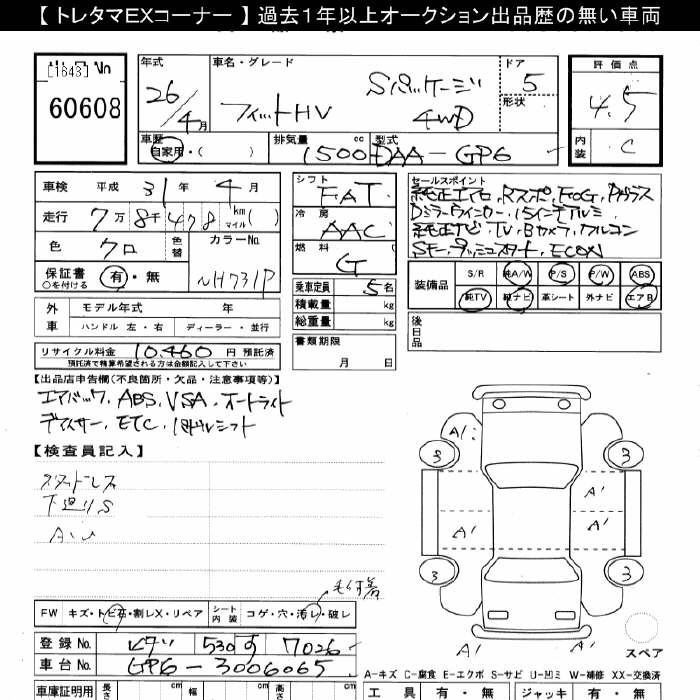 【トレタマEXコーナー】過去1年以上オークション出品歴の無い車両
[1643] No
60608
年式 車名・グレード ドア 評価点
26/4月 フィットHV Sパッケージ 4WD 5 4.5
形状
車歴 排気量 cc 型式 内装
自家用・( ) 1500 DAA-GP6 C
車検 平成 31年 4月
走行 7万8千478 km マイル ( )
色 クロ 色替 カラーNo. NH731P
保証書 有・無
○を付ける
外車 モデル年式 年
ハンドル 左・右 ディーラー・並行
リサイクル料金 10,460 円 預託済
預託済で精算希望される方は金額記入して下さい
シフト FAT
冷房 AAC
燃料 G
乗車定員 5名
積載量 kg
総重量 kg
書類期限
月 日
セールスポイント
純正エアロ, Rスポ, FOG, Pガラス
Dミラーウインカー, 15インチアルミ,
純正ナビ, TV, Bカメラ,
プッシュスタート, ECON
装備品 S/R 純A/W P/S P/W ABS
純TV 純ナビ 革シート 外ナビ エアB
後日品
【出品店申告欄(不良箇所・欠品・注意事項等)】
エアバック, ABS, VSA, オートライト
ETC,
【検査員記入】
スタッドレス
下廻りS
A'
A' 3 3 A' A' A' 3 3 A' A'
スペア
FW キズ・トビ石・割レX・リペア シート内装 コゲ・穴・汚レ・破レ
登録No. 530 す 7026
車台No. GP6-3006065
A-キズ C-腐食 E-エクボ S-サビ U-凹ミ W-補修 XX-交換済
車庫証明用 長さ cm 幅 cm 高さ cm 工具 有・無 ジャッキ 有・無